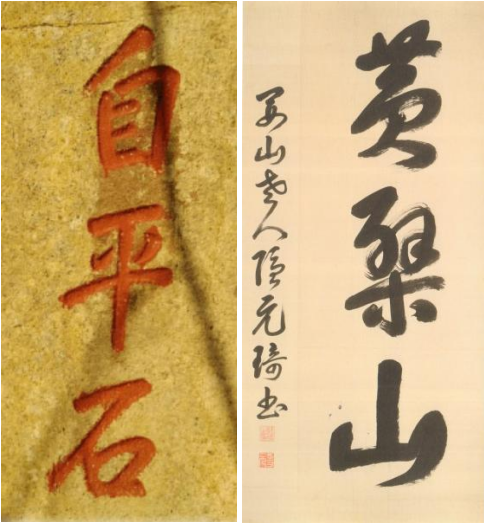 自平石
黄檗山
山老人隱元琦書